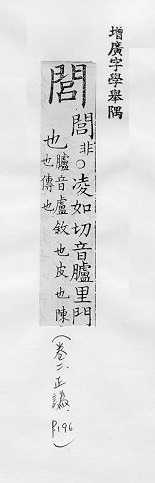 增廣字學舉隅
閭
閭非○凌如切音臚里門
也臚音盧敘也皮也陳
也傳也
(卷二.正譌.P196)